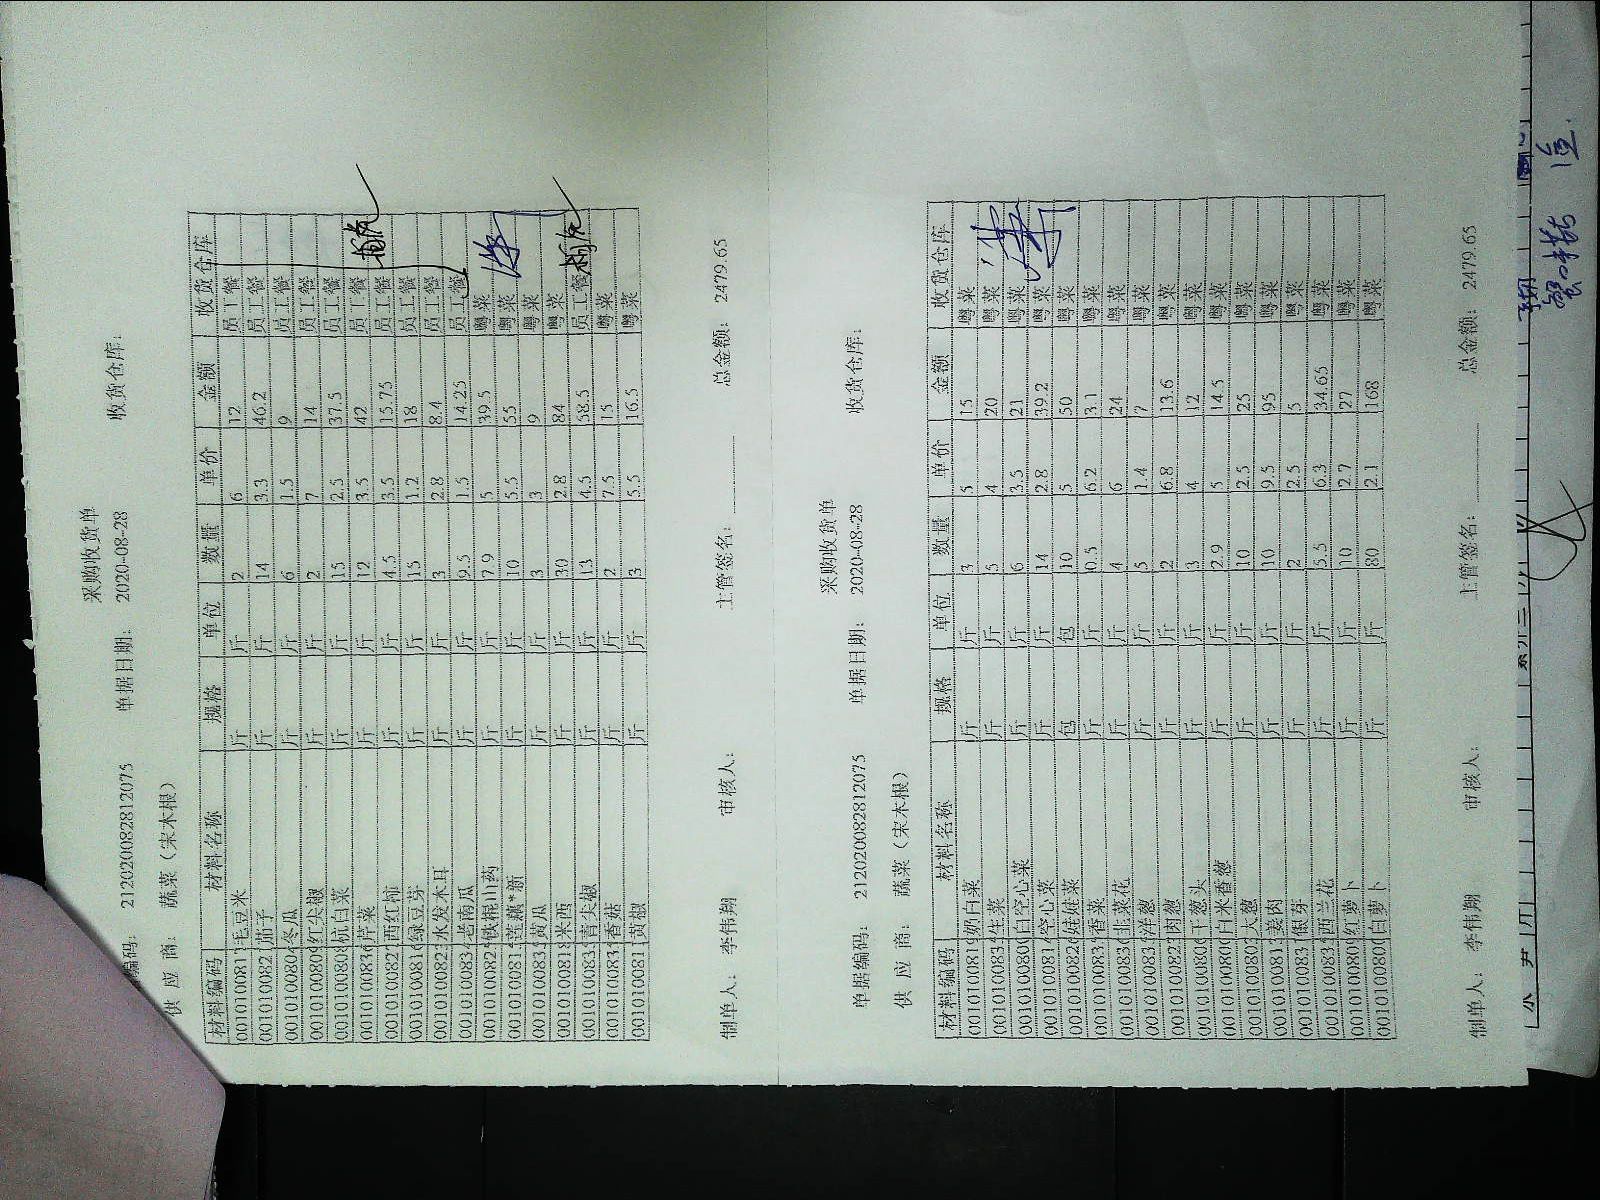 采购收货单
编码: 21202008​2812075 单据日期: 2020-08-28 收货仓库:
供 应 商: 蔬菜（宋木根）
材料编码 材料名称 规格 单位 数量 单价 金额 收货仓库
001010081 毛豆米 斤 斤 2 6 12 员工餐
001010082 茄子 斤 斤 14 3.3 46.2 员工餐
001010080 冬瓜 斤 斤 6 1.5 9 员工餐
001010080 红尖椒 斤 斤 2 7 14 员工餐
001010080 杭白菜 斤 斤 15 2.5 37.5 员工餐
001010083 芹菜 斤 斤 12 3.5 42 员工餐
001010082 西红柿 斤 斤 4.5 3.5 15.75 员工餐
001010081 绿豆芽 斤 斤 15 1.2 18 员工餐
001010082 水发木耳 斤 斤 3 2.8 8.4 员工餐
001010083 老南瓜 斤 斤 9.5 1.5 14.25 员工餐
001010082 铁棍山药 斤 斤 7.9 5 39.5 粤菜
001010081 莲藕*新 斤 斤 10 5.5 55 粤菜
001010083 黄瓜 斤 斤 3 3 9 粤菜
001010081 米西 斤 斤 30 2.8 84 粤菜
001010083 青尖椒 斤 斤 13 4.5 58.5 员工餐
001010083 香菇 斤 斤 2 7.5 15 粤菜
001010081 黄椒 斤 斤 3 5.5 16.5 粤菜
制单人: 李伟翔 审核人: 主管签名: 总金额: 2479.65
采购收货单
单据编码: 212020082812075 单据日期: 2020-08-28 收货仓库:
供 应 商: 蔬菜（宋木根）
材料编码 材料名称 规格 单位 数量 单价 金额 收货仓库
001010081 奶白菜 斤 斤 3 5 15 粤菜
001010083 生菜 斤 斤 5 4 20 粤菜
001010080 白空心菜 斤 斤 6 3.5 21 粤菜
001010081 空心菜 斤 斤 14 2.8 39.2 粤菜
001010082 娃娃菜 包 包 10 5 50 粤菜
001010083 香菜 斤 斤 0.5 6.2 3.1 粤菜
001010083 韭菜花 斤 斤 4 6 24 粤菜
001010083 洋葱 斤 斤 5 1.4 7 粤菜
001010082 肉葱 斤 斤 2 6.8 13.6 粤菜
001010080 干葱头 斤 斤 3 4 12 粤菜
001010080 白米香葱 斤 斤 2.9 5 14.5 粤菜
001010080 大葱 斤 斤 10 2.5 25 粤菜
001010081 姜肉 斤 斤 10 9.5 95 粤菜
001010083 银芽 斤 斤 2 2.5 5 粤菜
001010083 西兰花 斤 斤 5.5 6.3 34.65 粤菜
001010080 红萝卜 斤 斤 10 2.7 27 粤菜
001010080 白萝卜 斤 斤 80 2.1 168 粤菜
制单人: 李伟翔 审核人: 主管签名: 总金额: 2479.65